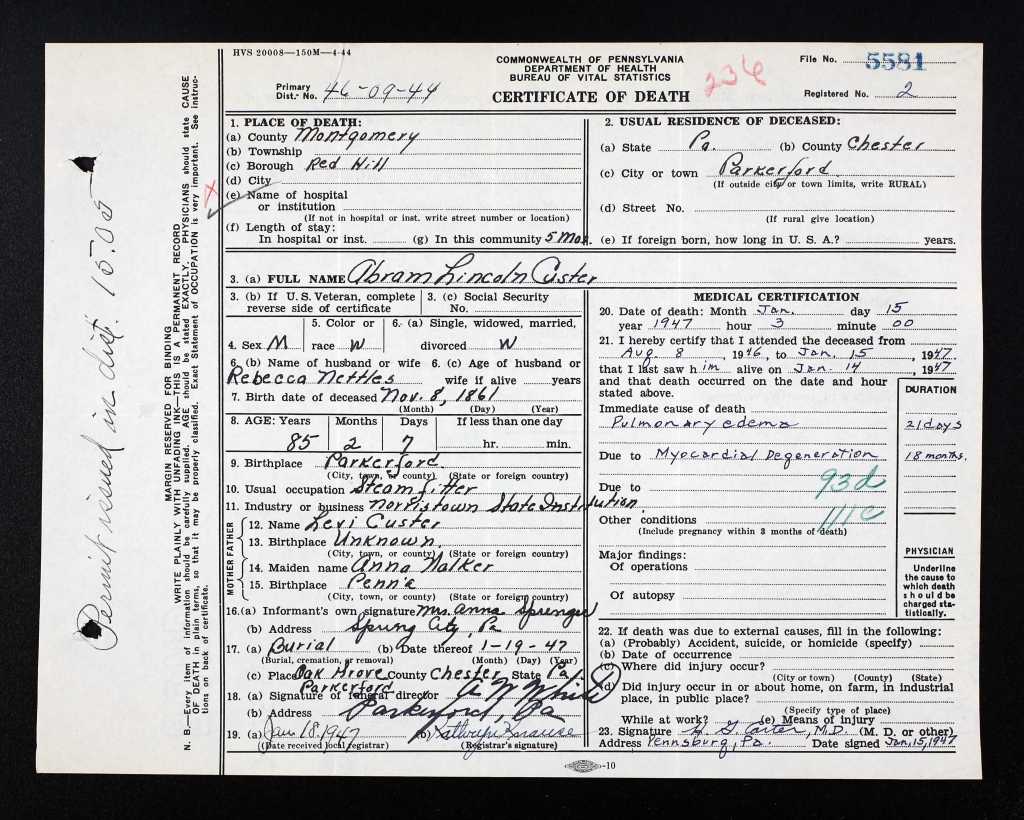 HVS 20008—150M—4-44
COMMONWEALTH OF PENNSYLVANIA
DEPARTMENT OF HEALTH
BUREAU OF VITAL STATISTICS
CERTIFICATE OF DEATH
236
File No. 5581
Primary
Dist. No. 46-09-44
Registered No. 2
1. PLACE OF DEATH:
(a) County Montgomery
(b) Township
(c) Borough Red Hill
(d) City
(e) Name of hospital
or institution
(If not in hospital or inst. write street number or location)
(f) Length of stay:
In hospital or inst. (g) In this community 5 Mos.
2. USUAL RESIDENCE OF DECEASED:
(a) State Pa. (b) County Chester
(c) City or town Parkerford
(If outside city or town limits, write RURAL)
(d) Street No.
(If rural give location)
(e) If foreign born, how long in U. S. A.? years.
3. (a) FULL NAME Abram Lincoln Custer
3. (b) If U. S. Veteran, complete
reverse side of certificate
3. (c) Social Security
No.
4. Sex M
5. Color or
race W
6. (a) Single, widowed, married,
divorced W
6. (b) Name of husband or wife
Rebecca Nettles
6. (c) Age of husband or
wife if alive years
7. Birth date of deceased Nov. 8, 1861
(Month) (Day) (Year)
8. AGE: Years Months Days If less than one day
85 2 7 hr. min.
9. Birthplace Parkerford.
(City, town, or county) (State or foreign country)
10. Usual occupation Steam fitter
11. Industry or business Norristown State Institution
FATHER
12. Name Levi Custer
13. Birthplace Unknown.
(City, town, or county) (State or foreign country)
MOTHER
14. Maiden name Anna Walker
15. Birthplace Penn'a
(City, town, or county) (State or foreign country)
16. (a) Informant's own signature Mrs. Anna Sprenger
(b) Address Spring City, Pa
17. (a) Burial (b) Date thereof 1-19-47
(Burial, cremation, or removal) (Month) (Day) (Year)
(c) Place Oak Grove County Chester State Pa.
Parkerford
18. (a) Signature of funeral director
(b) Address Parkerford, Pa
19. (a) Jan 18, 1947 (b) Krause
(Date received local registrar) (Registrar's signature)
MEDICAL CERTIFICATION
20. Date of death: Month Jan. day 15
year 1947 hour 3 minute 00
21. I hereby certify that I attended the deceased from
Aug 8, 1946, to Jan. 15, 1947.
that I last saw him alive on Jan. 14, 1947
and that death occurred on the date and hour
stated above.
DURATION
Immediate cause of death
Pulmonary edema 21 days
Due to Myocardial Degeneration 18 months.
Due to 93d
Other conditions 111c
(Include pregnancy within 3 months of death)
Major findings:
Of operations
Of autopsy
PHYSICIAN
Underline
the cause to
which death
should be
charged sta-
tistically.
22. If death was due to external causes, fill in the following:
(a) (Probably) Accident, suicide, or homicide (specify)
(b) Date of occurrence
(c) Where did injury occur?
(City or town) (County) (State)
(d) Did injury occur in or about home, on farm, in industrial
place, in public place?
(Specify type of place)
While at work? (e) Means of injury
23. Signature G. Carter, M.D. (M. D. or other)
Address Pennsburg, Pa. Date signed Jan. 15, 1947
10
MARGIN RESERVED FOR BINDING
WRITE PLAINLY WITH UNFADING INK—THIS IS A PERMANENT RECORD
N. B.—Every item of information should be carefully supplied. AGE should be stated EXACTLY. PHYSICIANS should state CAUSE
OF DEATH in plain terms, so that it may be properly classified. Exact Statement of OCCUPATION is very important. See instruc-
tions on back of certificate.
Permit issued in dist. 15.05